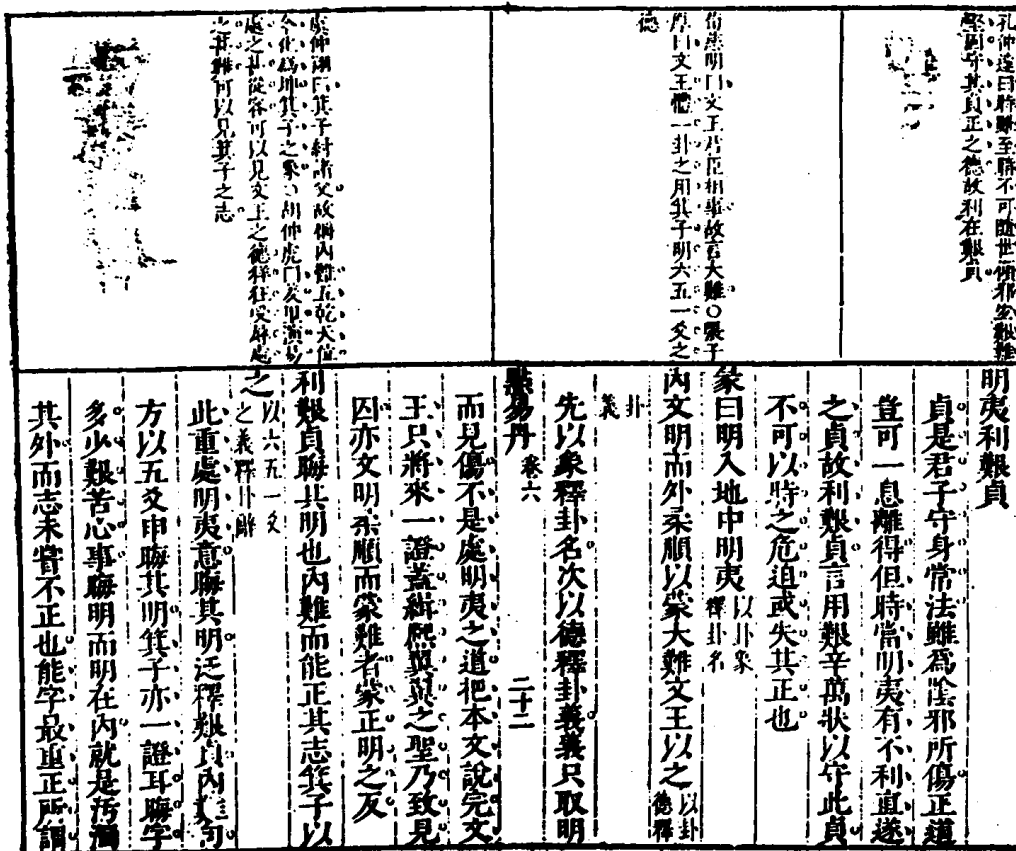 孔仲達曰時雖至暗不可隨世傾邪宜艱難
堅固守其貞正之德故利在艱貞
荀慈明曰文王君臣相事故言大難〇張子
厚曰文王體一卦之用箕子明六五一爻之
德
虞仲翔曰箕子紂諸父故稱內難五乾天位
今化爲坤箕子之象〇胡仲虎曰羑里演易
處之甚從容可以見文王之德佯狂受辱處
之極難可以見箕子之志
明夷利艱貞
貞是君子守身常法雖爲陰邪所傷正道
豈可一息離得但時當明夷有不利直遂
之貞故利艱貞言用艱辛萬狀以守此貞
不可以時之危迫或失其正也
彖曰明入地中明夷以卦象釋卦名
內文明而外柔順以蒙大難文王以之以卦德釋
卦義
先以象釋卦名次以德釋卦義義只取明
點易丹 卷六 二十二
而見傷不是處明夷之道把本文說完文
王只將來一證蓋緝熙與與之聖乃致見
囚亦文明柔順而蒙難者蒙正明之反
利艱貞晦其明也內難而能正其志箕子以
之以六五一爻之義釋卦辭
此重處明夷意晦其明迂釋艱貞內難句
方以五爻申晦其明箕子亦一證耳晦字
多少艱苦心事晦明而明在內就是污濁
其外而志未嘗不正也能字最重正所謂